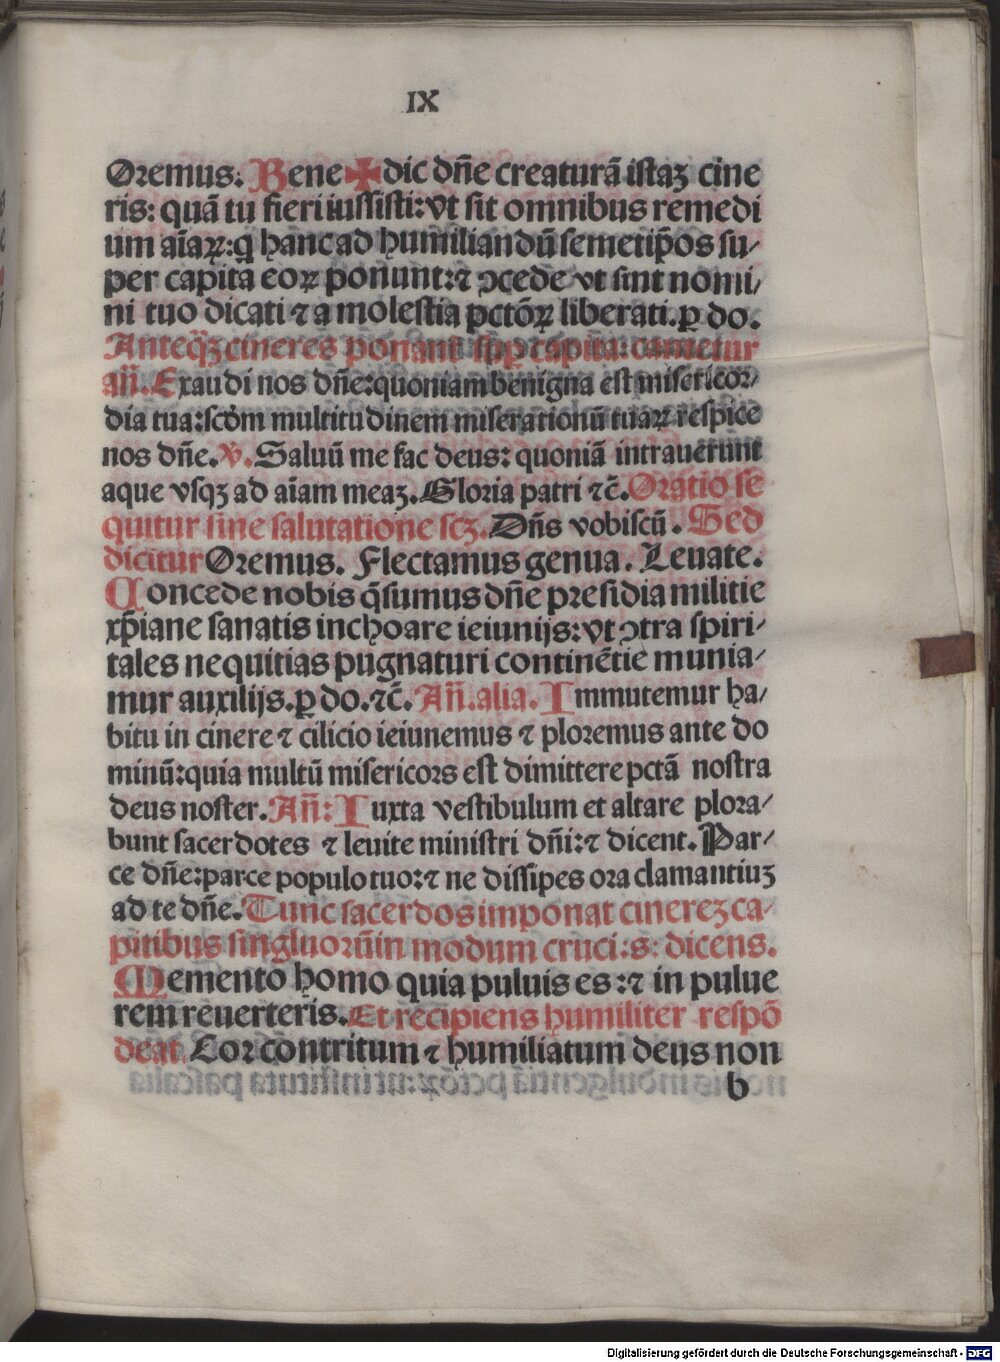 IX
Oremus. Bene✠dic dñe creaturā istaȝ cine
ris: quā tu fieri iussisti: vt sit omnibus remedi
um aīaꝝ: q hanc ad humiliandū semetip̄os su/
per capita eoꝝ ponunt: ⁊ ꝯcede vt sint nomi/
ni tuo dicati ⁊ a molestia pctōꝝ liberati. ꝑ do.
Anteq̄ȝ cineres ponant̄ sup̄ capita: cantetur
añ. Exaudi nos dñe: quoniam benigna est misericor/
dia tua: scd̄m multitudinem miserationū tuaꝝ respice
nos dñe. ℣. Saluū me fac deus: quoniā intrauerunt
aque vsqȝ ad aīam meaȝ. Gloria patri ⁊c̄. Oratio se
quitur sine salutatione scȝ. Dñs vobiscū. Sed
dicitur Oremus. Flectamus genua. Leuate.
Concede nobis q̄sumus dñe presidia militie
xp̄iane sanatis inchoare ieiunijs: vt ꝯtra spiri/
tales nequitias pugnaturi continētie munia/
mur auxilijs. ꝑ do. ⁊c̄. Añ. alia. Immutemur ha/
bitu in cinere ⁊ cilicio ieiunemus ⁊ ploremus ante do
minū: quia multū misericors est dimittere pctā nostra
deus noster. Añ: Iuxta vestibulum et altare plora/
bunt sacerdotes ⁊ leuite ministri dñi: ⁊ dicent. Par/
ce dñe: parce populo tuo: ⁊ ne dissipes ora clamantiuȝ
ad te dñe. Tunc sacerdos imponat cinereȝ ca/
pitibus singluorū in modum cruci: s: dicens.
Memento homo quia puluis es: ⁊ in pulue
rem reuerteris. Et recipiens humiliter respō
deat. Cor contritum ⁊ humiliatum deus non
b
Digitalisierung gefördert durch die Deutsche Forschungsgemeinschaft - DFG